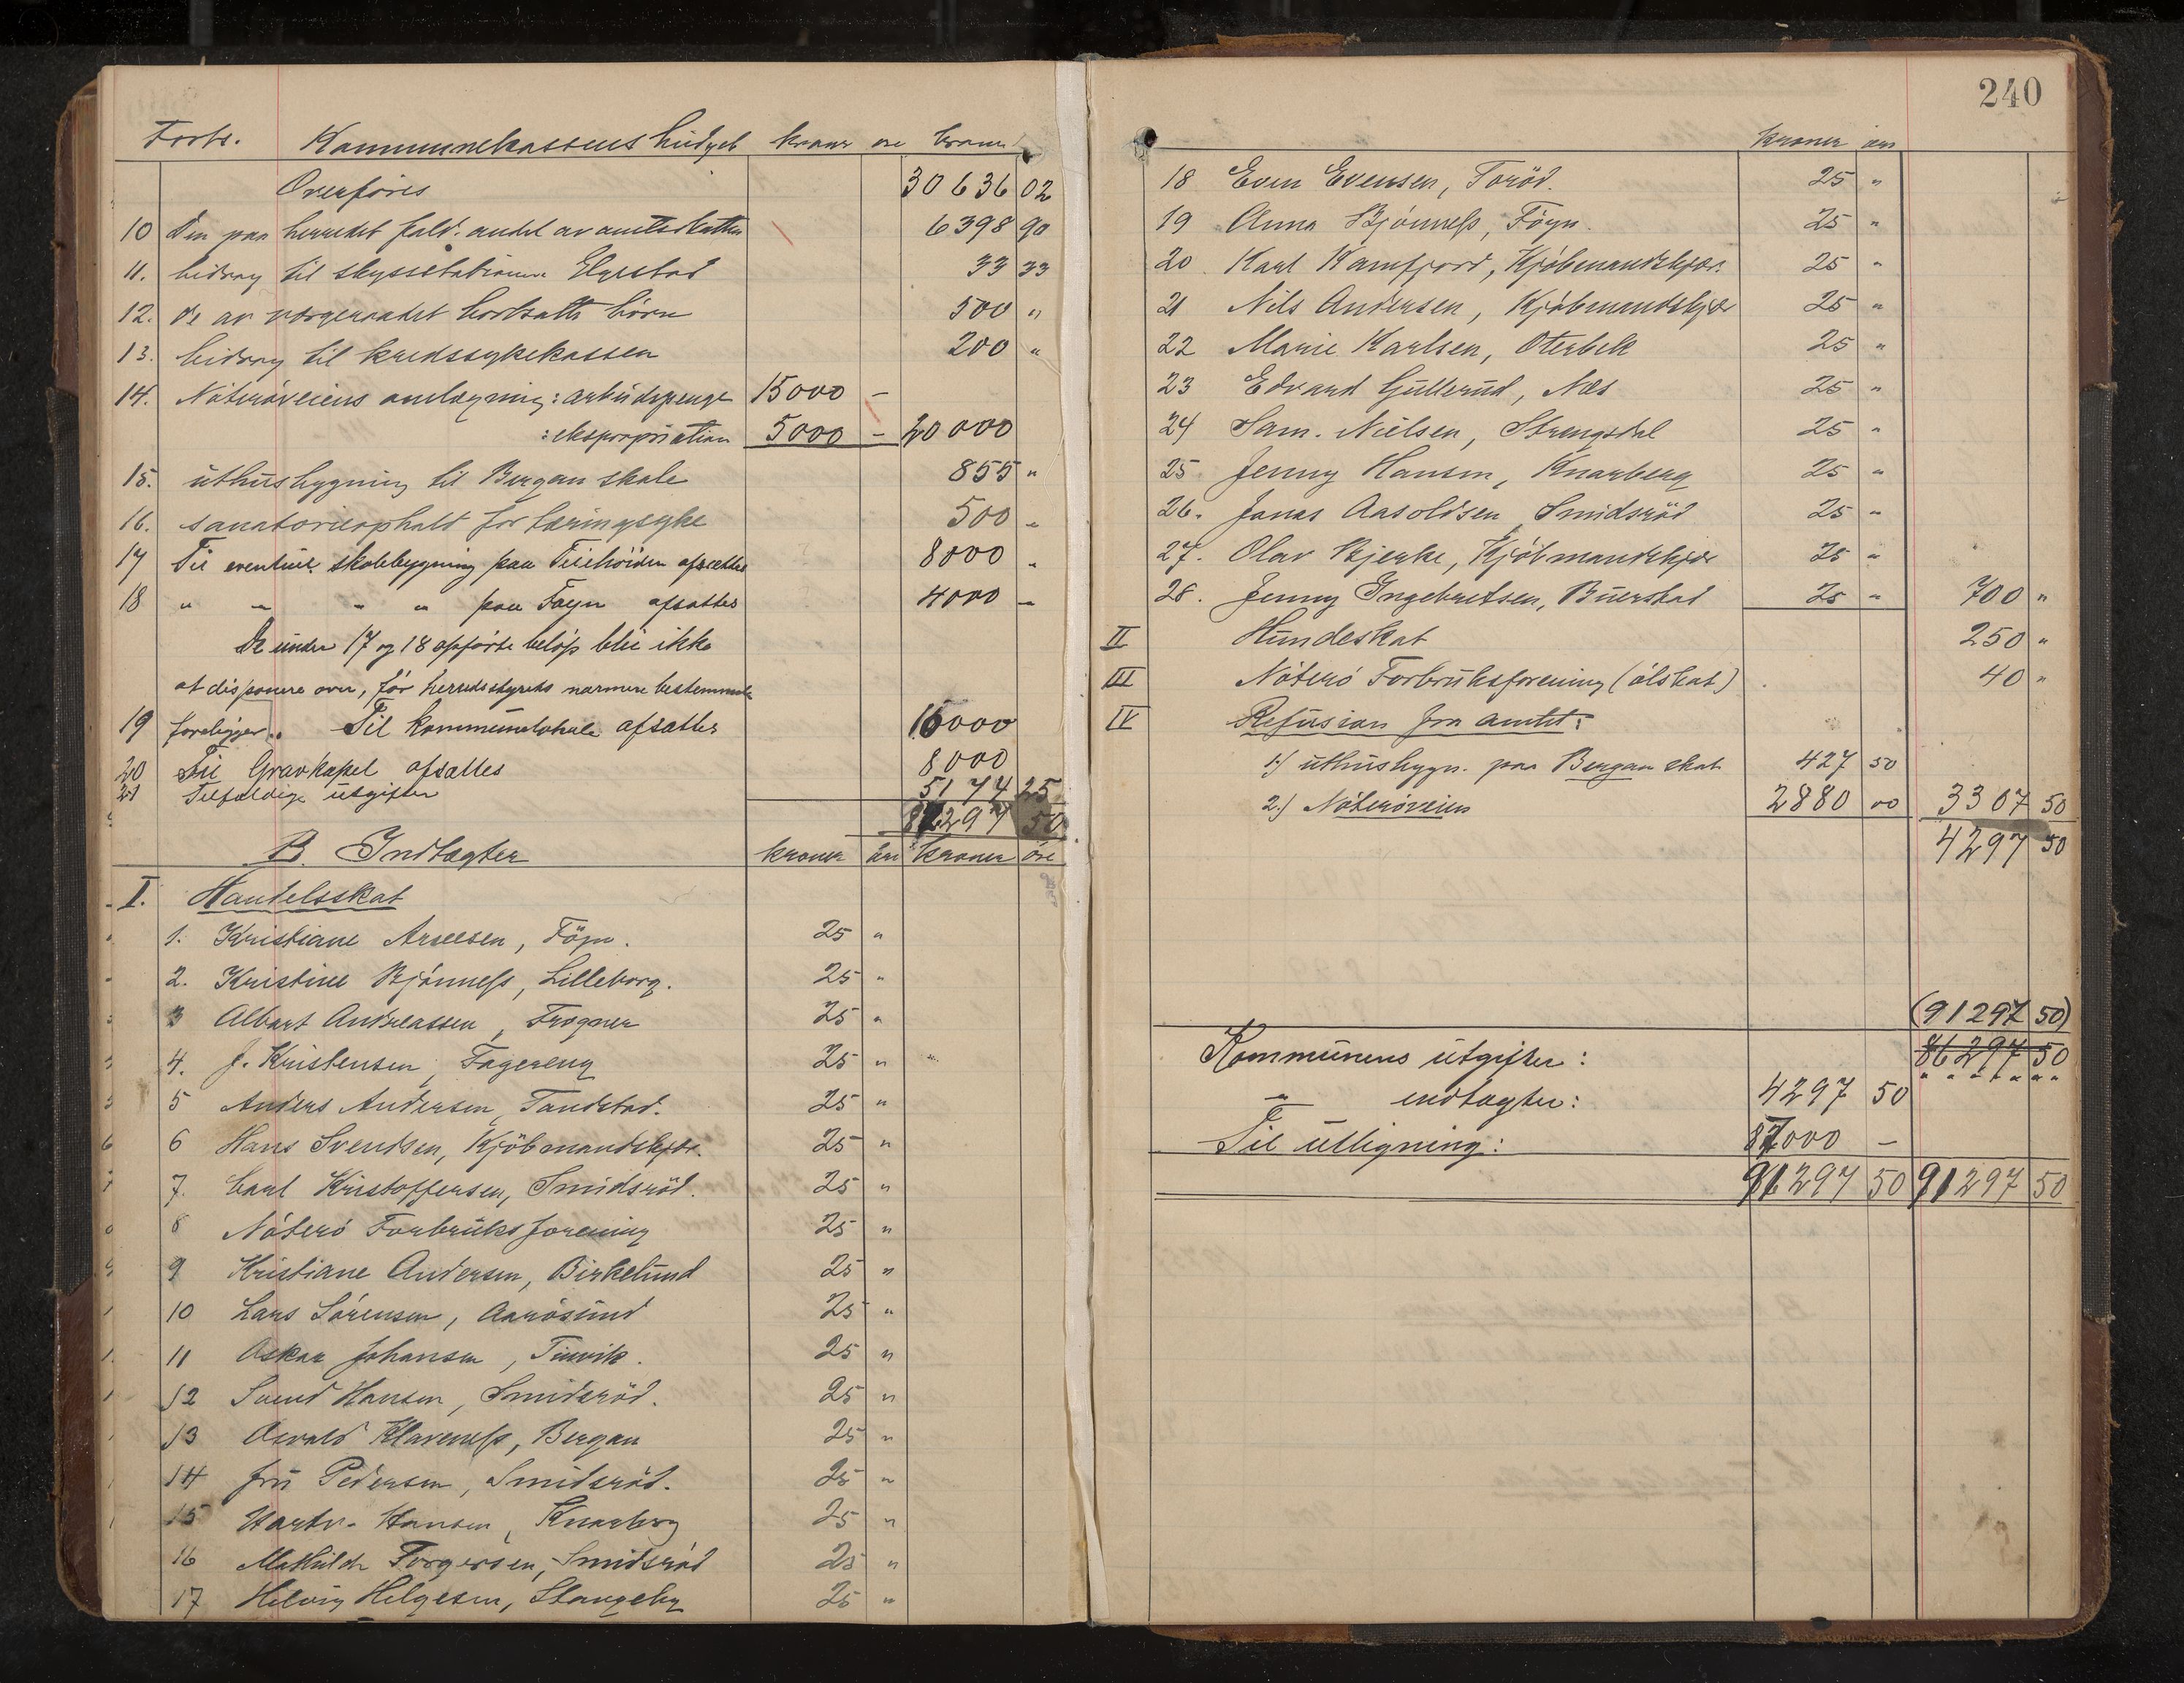 Forts. Kommunekassens budget kroner øre kroner
Overføres 30636 02
10 Den paa herredet fald. andel av amtsskatten 6398 90
11. bidrag til skysstationen Elgestad 33 33
12. De av vergeraadet bortsatte börn 500 "
13. bidrag til kredssykekassen 200 "
14. Nøterøveiens omlægning: arbeidspenge 15000 -
: ekspropriation 5000 - 20000
15. uthusbygning til Bergan skole 855 "
16. sanatorieophold for tæringsyke 500 "
17 Til eventuel skolebygning paa Teiehöiden afsættes 8000 "
18 " " " " paa Föyn afsættes 4000 -
De under 17 og 18 opførte beløp blir ikke
at disponere over, før herredsstyrets nærmere bestemmelse
19 foreligger. Til kommunelokale afsættes 16000
20 Til Gravkapel afsættes 8000
21 Tilfældige utgifter 5174 25
297 50
B. Indtægter kroner øre kroner øre
I. Handelsskat
1. Kristiane Arnesen, Föyn. 25 "
2. Kristine Bjønness, Lilleborg. 25 "
3 Albert Andreassen, Frogner 25 "
4. J. Kristensen, Fagereng 25 "
5 Anders Andersen, Tandstad. 25 "
6 Hans Svendsen, Kjöbmandskjær. 25 "
7. Carl Kristoffersen, Smidsröd. 25 "
8 Nøterø Forbruksforening 25 "
9 Kristiane Andersen, Birkelund 25 "
10 Lars Sørensen, Aarøsund 25 "
11 Oskar Johansen, Tinvik. 25 "
12 Svend Hansen, Smidsröd. 25 "
13 Osvald Klaveness, Bergan 25 "
14 fru Pedersen, Smidsröd. 25 "
15 Hartv. Hansen, Knarberg 25 "
16 Mathilde Torgersen, Smidsröd 25 "
17 Helvig Helgesen, Stangeby 25 "
240
Kroner øre
18 Even Evensen, Toröd. 25 "
19 Anna Bjønness, Föyn. 25 "
20 Karl Kamfjord, Kjöbmandskjær. 25 "
21 Nils Andersen, Kjöbmandskjær 25 "
22 Marie Karlsen, Oterbek 25 "
23 Edvard Gullerud, Næs 25 "
24 Sam. Nielsen, Strengsdal 25 "
25 Jenny Hansen, Knarberg 25 "
26. Jonas Aasoldsen, Smidsröd 25 "
27. Olav Bjerke, Kjöbmandskjær 25 "
28. Jenny Ingebretsen, Buerstad 25 " 700 "
II Hundeskat 250 "
III Nøterø Forbruksforening (ølskat) 40 "
IV Refusion fra amtet:
1.) uthusbygn. paa Bergan skole 427 50
2.) Nøterøveien 2880 00 3307 50
4297 50
(91297 50)
Kommunens utgifter: 86297 50
" indtægter: 4297 50
Til utligning: 87000 -
91297 50 91297 50